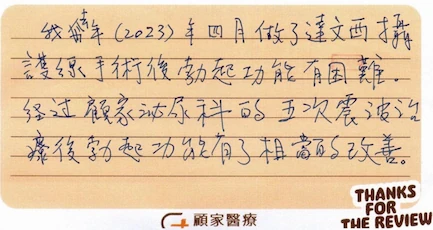 我隨年(2023)年四月做了達文西攝
護線手術後勃起功能有困難。
经过顧家泌尿科的五次震波治
療後勃起功能有了相當的改善。
顧家醫療
THANKS
FOR
THE REVIEW